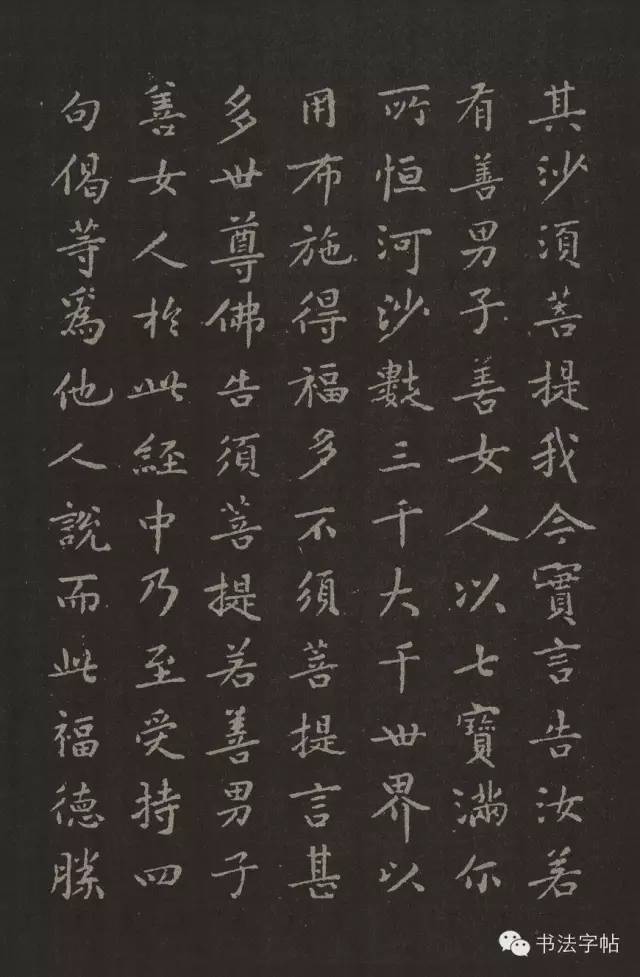 其沙須菩提我今實言告汝若
有善男子善女人以七寶滿尒
所恒河沙數三千大千世界以
用布施得福多不須菩提言甚
多世尊佛告須菩提若善男子
善女人於此經中乃至受持四
句偈等爲他人說而此福德勝
书法字帖